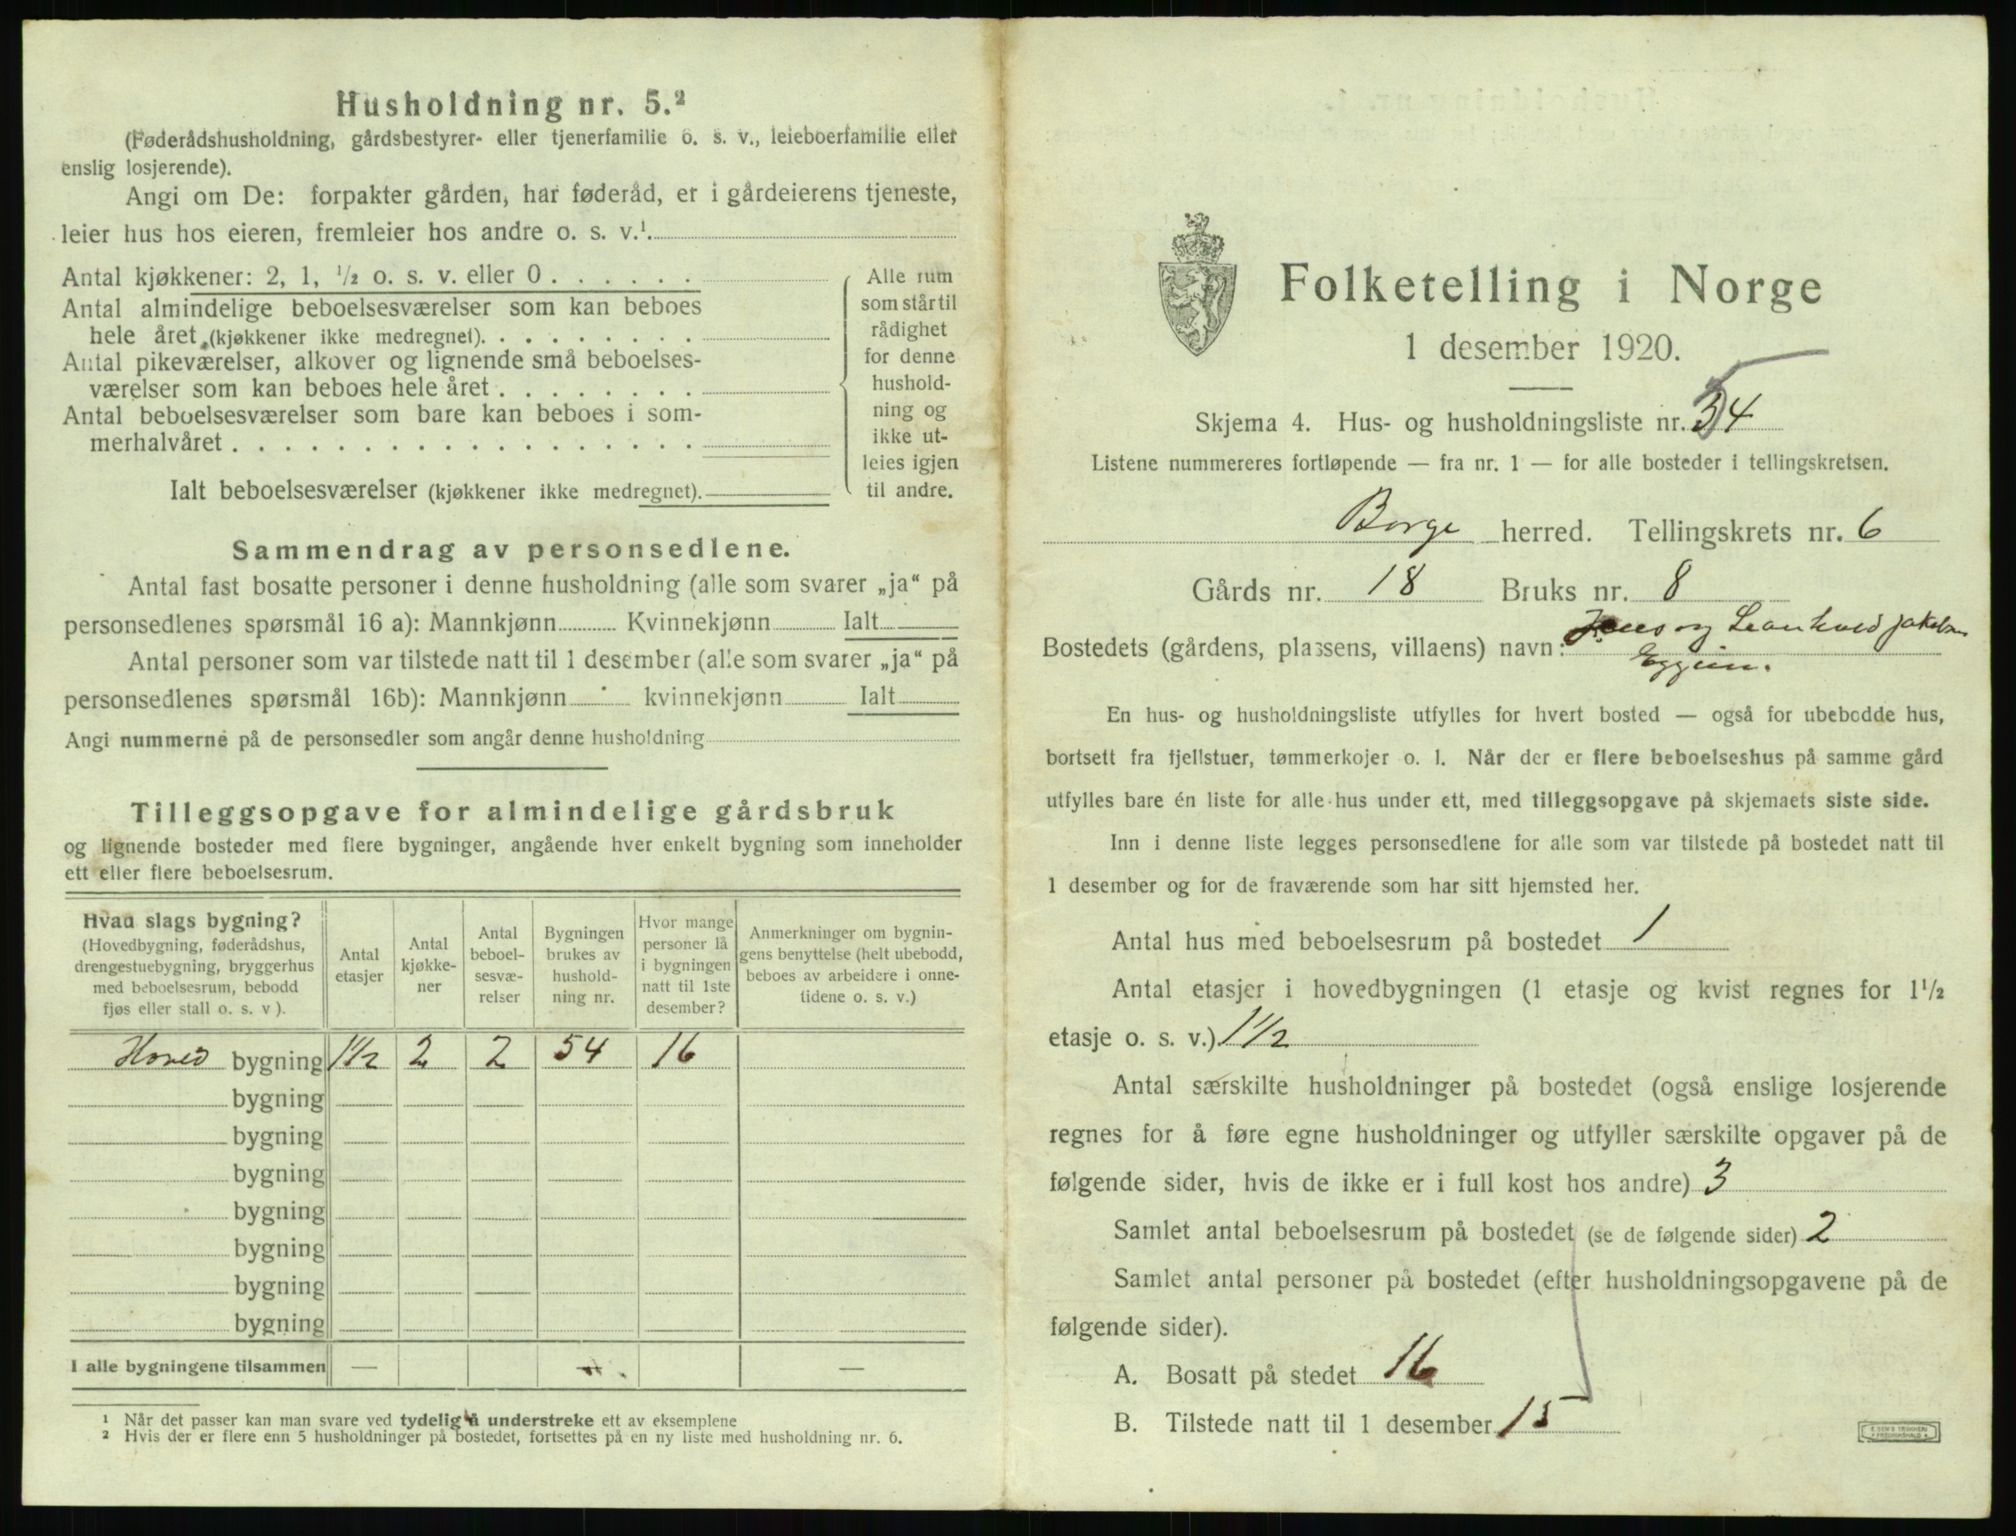 Husholdning nr. 5.²
(Føderådshusholdning, gårdsbestyrer- eller tjenerfamilie o. s. v., leieboerfamilie eller
enslig losjerende).
Angi om De: forpakter gården, har føderåd, er i gårdeierens tjeneste,
leier hus hos eieren, fremleier hos andre o. s. v.¹.
Antal kjøkkener: 2, 1, ½ o. s. v. eller 0 . . . . . .
Antal almindelige beboelsesværelser som kan beboes
hele året (kjøkkener ikke medregnet). . . . . . . . .
Antal pikeværelser, alkover og lignende små beboelses-
værelser som kan beboes hele året . . . . . . . .
Antal beboelsesværelser som bare kan beboes i som-
merhalvåret . . . . . . . . . . . . . . . . . .
Ialt beboelsesværelser (kjøkkener ikke medregnet).
Alle rum
som står til
rådighet
for denne
hushold-
ning og
ikke ut-
leies igjen
til andre.
Sammendrag av personsedlene.
Antal fast bosatte personer i denne husholdning (alle som svarer „ja“ på
personsedlenes spørsmål 16 a): Mannkjønn Kvinnekjønn Ialt
Antal personer som var tilstede natt til 1 desember (alle som svarer „ja“ på
personsedlenes spørsmål 16b): Mannkjønn kvinnekjønn Ialt
Angi nummerne på de personsedler som angår denne husholdning
Tilleggsopgave for almindelige gårdsbruk
og lignende bosteder med flere bygninger, angående hver enkelt bygning som inneholder
ett eller flere beboelsesrum.
Hvad slags bygning?
(Hovedbygning, føderådshus,
drengestuebygning, bryggerhus
med beboelsesrum, bebodd
fjøs eller stall o. s. v ).
Antal
etasjer
Antal
kjøkke-
ner
Antal
beboel-
sesvæ-
relser
Bygningen
brukes av
hushold-
ning nr.
Hvor mange
personer lå
i bygningen
natt til 1ste
desember?
Anmerkninger om bygnin-
gens benyttelse (helt ubebodd,
beboes av arbeidere i onne-
tidene o. s. v.)
Hoved bygning 1½ 2 2 54 16
bygning
bygning
bygning
bygning
bygning
bygning
bygning
I alle bygningene tilsammen — —
¹ Når det passer kan man svare ved tydelig å understreke ett av eksemplene
² Hvis der er flere enn 5 husholdninger på bostedet, fortsettes på en ny liste med husholdning nr. 6.
Folketelling i Norge
1 desember 1920.
Skjema 4. Hus- og husholdningsliste nr. 54
Listene nummereres fortløpende — fra nr. 1 — for alle bosteder i tellingskretsen.
Borge herred. Tellingskrets nr. 6
Gårds nr. 18 Bruks nr. 8
Bostedets (gårdens, plassens, villaens) navn: Jens og Leonhard Jakobsen
En hus- og husholdningsliste utfylles for hvert bosted — også for ubebodde hus,
bortsett fra fjellstuer, tømmerkojer o. l. Når der er flere beboelseshus på samme gård
utfylles bare én liste for alle hus under ett, med tilleggsopgave på skjemaets siste side.
Inn i denne liste legges personsedlene for alle som var tilstede på bostedet natt til
1 desember og for de fraværende som har sitt hjemsted her.
Antal hus med beboelsesrum på bostedet 1
Antal etasjer i hovedbygningen (1 etasje og kvist regnes for 1½
etasje o. s. v.) 1½
Antal særskilte husholdninger på bostedet (også enslige losjerende
regnes for å føre egne husholdninger og utfyller særskilte opgaver på de
følgende sider, hvis de ikke er i full kost hos andre) 3
Samlet antal beboelsesrum på bostedet (se de følgende sider) 2
Samlet antal personer på bostedet (efter husholdningsopgavene på de
følgende sider).
A. Bosatt på stedet 16
B. Tilstede natt til 1 desember 15